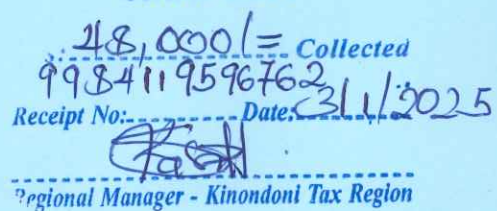 48,000/= Collected
99841119596762
Receipt No:............ Date: 3/1/2025
Regional Manager - Kinondoni Tax Region